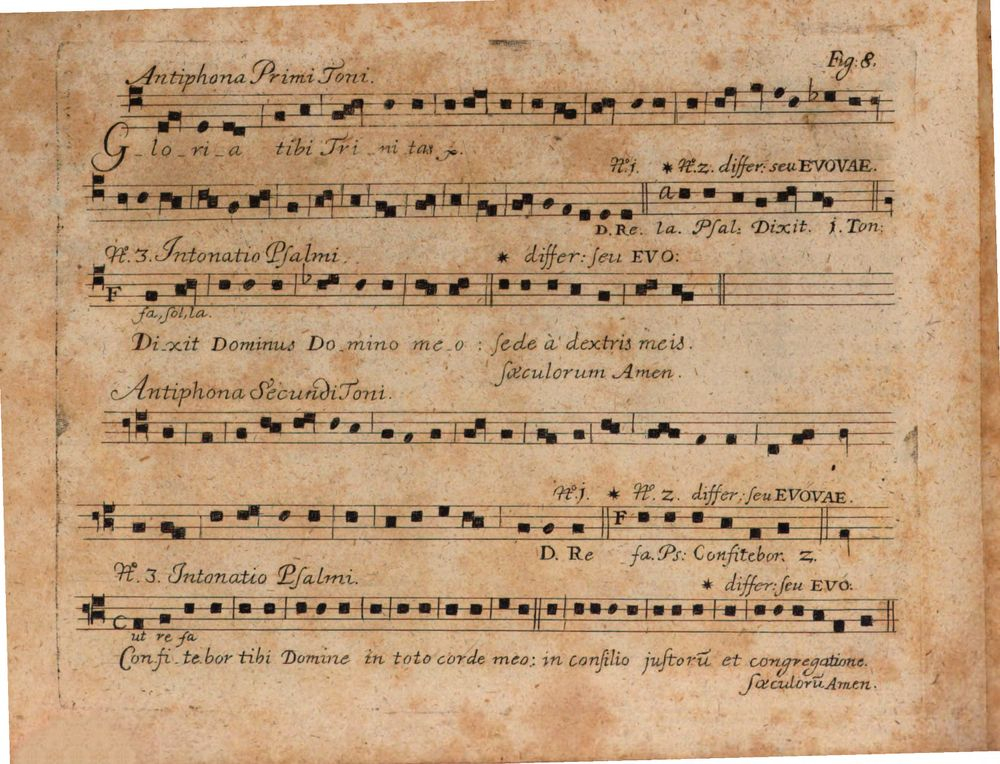 Fig: 8.
Antiphona Primi Toni.
G_lo_ri_a tibi Tri_ni_tas
Nº. 1. * Nº. 2. differ: seu EVOVAE.
a
D. Re. la. Psal: Dixit. i. Ton:
Nº. 3. Intonatio Psalmi. * differ: seu EVO:
F
fa, sol, la.
Di_xit Dominus Do_mino me_o : sede à dextris meis.
sæculorum Amen.
Antiphona Secundi Toni.
Nº. 1. * Nº. 2. differ: seu EVOVAE.
F
D. Re fa. Ps: Confitebor. 2.
Nº. 3. Intonatio Psalmi. * differ: seu EVO:
C
ut re fa
Confi_te_bor tibi Domine in toto corde meo: in consilio justorū et congregatione.
sæculorū Amen.